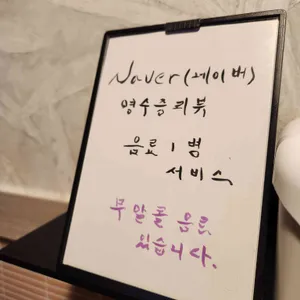 Naver(네이버)
영수증리뷰
음료 1병
서비스
무알콜 음료
있습니다.